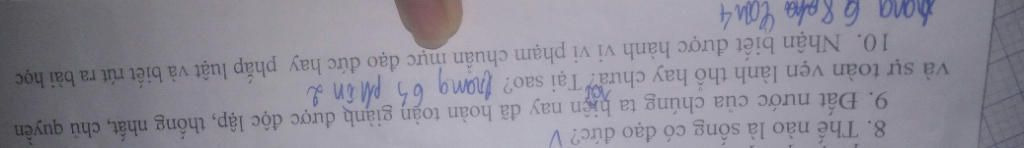 8. Thế nào là sống có đạo đức? V
9. Đất nước của chúng ta hiện nay đã hoàn toàn giành được độc lập, thống nhất, chủ quyền
và sự toàn vẹn lãnh thổ hay chưa? Tại sao? rồi trang 63 phần 2
10. Nhận biết được hành vi vi phạm chuẩn mực đạo đức hay pháp luật và biết rút ra bài học
trang 68